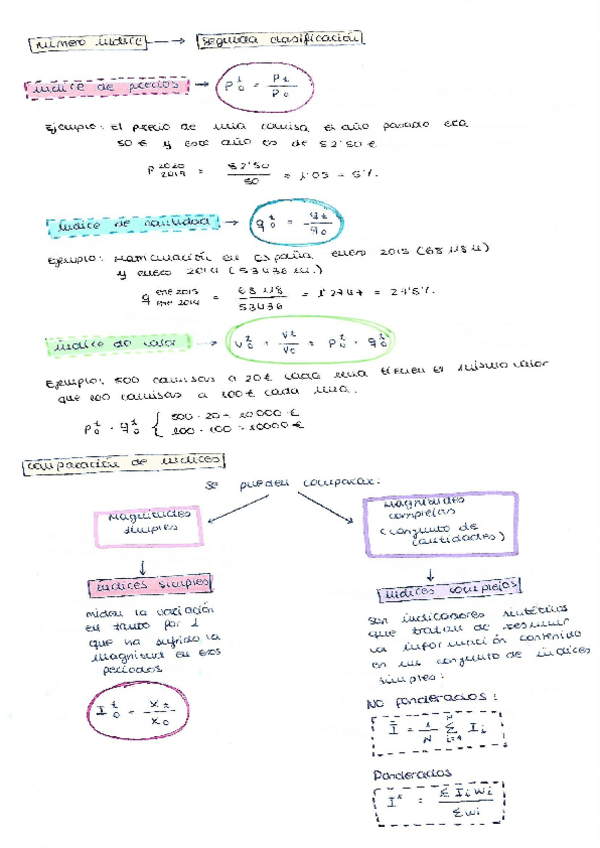 número índice → segunda clasificación
índice de precios → P₀ᵗ = Pₜ / P₀
Ejemplo: El precio de una camisa el año pasado era
50 € y este año es de 52'50 €
P 2020 2019 = 52'50 / 50 = 1'05 = 5%.
índice de cantidad → q₀ᵗ = qₜ / q₀
Ejemplo: Matriculación en España enero 2015 (68 118 u)
y enero 2014 (53436 u.)
q ene 2015 ene 2014 = 68 118 / 53436 = 1'2747 = 27'5%.
índice de valor → V₀ᵗ = Vᵗ / V₀ = P₀ᵗ · q₀ᵗ
Ejemplo: 500 camisas a 20 € cada una tienen el mismo valor
que 100 camisas a 100 € cada una.
P₀ᵗ · q₀ᵗ { 500 · 20 = 10000 €
100 · 100 = 10000 €
comparación de índices
se pueden comparar:
Magnitudes simples
Magnitudes complejas
(conjunto de cantidades)
índices simples
índices complejos
miden la variación
en tanto por 1
que ha sufrido la
magnitud en esos
períodos
I₀ᵗ = Xₜ / X₀
son indicadores sintéticos
que tratan de resumir
la información contenida
en un conjunto de índices
simples:
No ponderados:
Ī = 1/N Σ i=1 N Iᵢ
Ponderados
I* = Σ Iᵢ wᵢ / Σ wᵢ